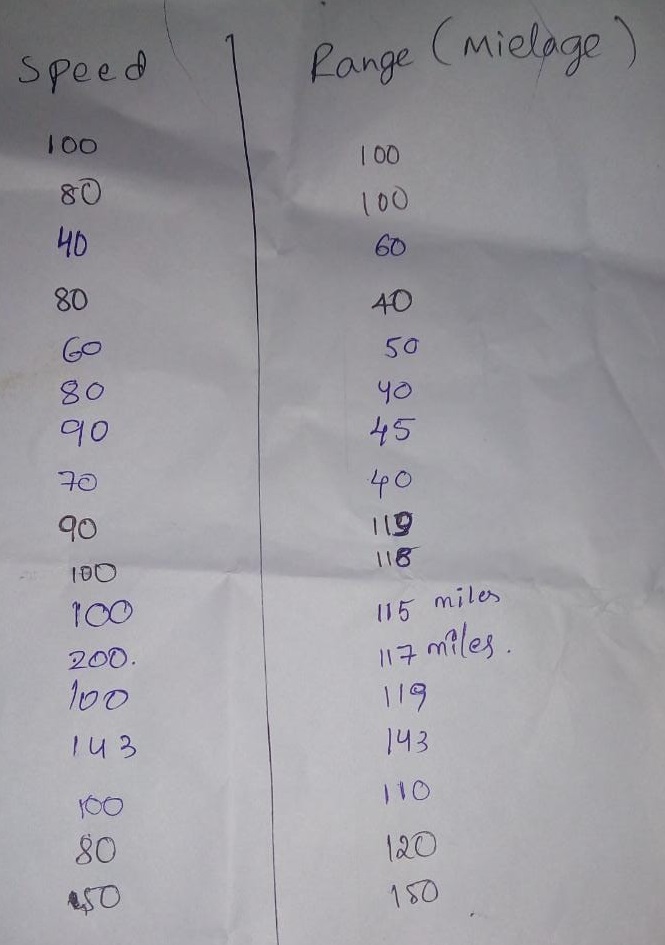 Speed Range (Mielage)
100 100
80 100
40 60
80 40
60 50
80 40
90 45
70 40
90 119
100 118
100 115 miles
200. 117 miles.
100 119
143 143
100 110
80 120
50 150